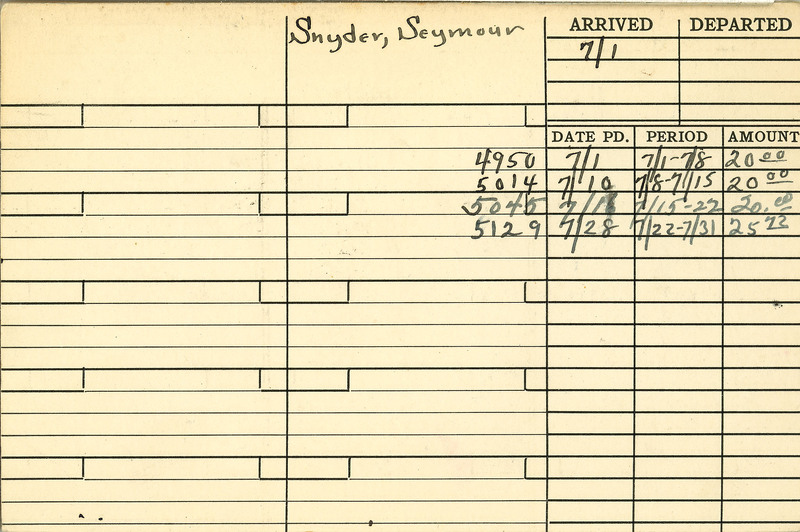 Snyder, Seymour
ARRIVED DEPARTED
7/1
DATE PD. PERIOD AMOUNT
4950 7/1 7/1-7/8 20 00
5014 7/10 7/8-7/15 20 00
5045 7/18 7/15-22 20.00
5129 7/28 7/22-7/31 25 72